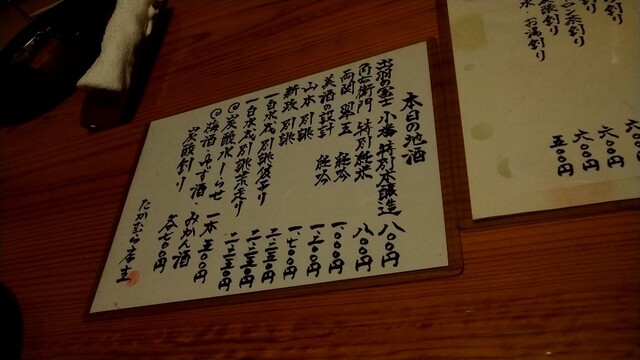 本日の地酒
出羽の富士 小番 特別本醸造 八〇〇円
角右衛門 特別純米 八〇〇円
両関 翠玉 純吟 一、〇〇〇円
美酒の設計 純吟 一、二〇〇円
山本 別誂 一、七〇〇円
新政 別誂 二、二五〇円
一白水成 別誂
一白水成 別誂 荒走り 二、二五〇円
@炭酸水 しらせ 一本 五〇〇円
@梅酒・ゆず酒・みかん酒 各七〇〇円
炭酸割り
たかむら店主
お湯割り 五〇〇円
六〇〇円
六〇〇円